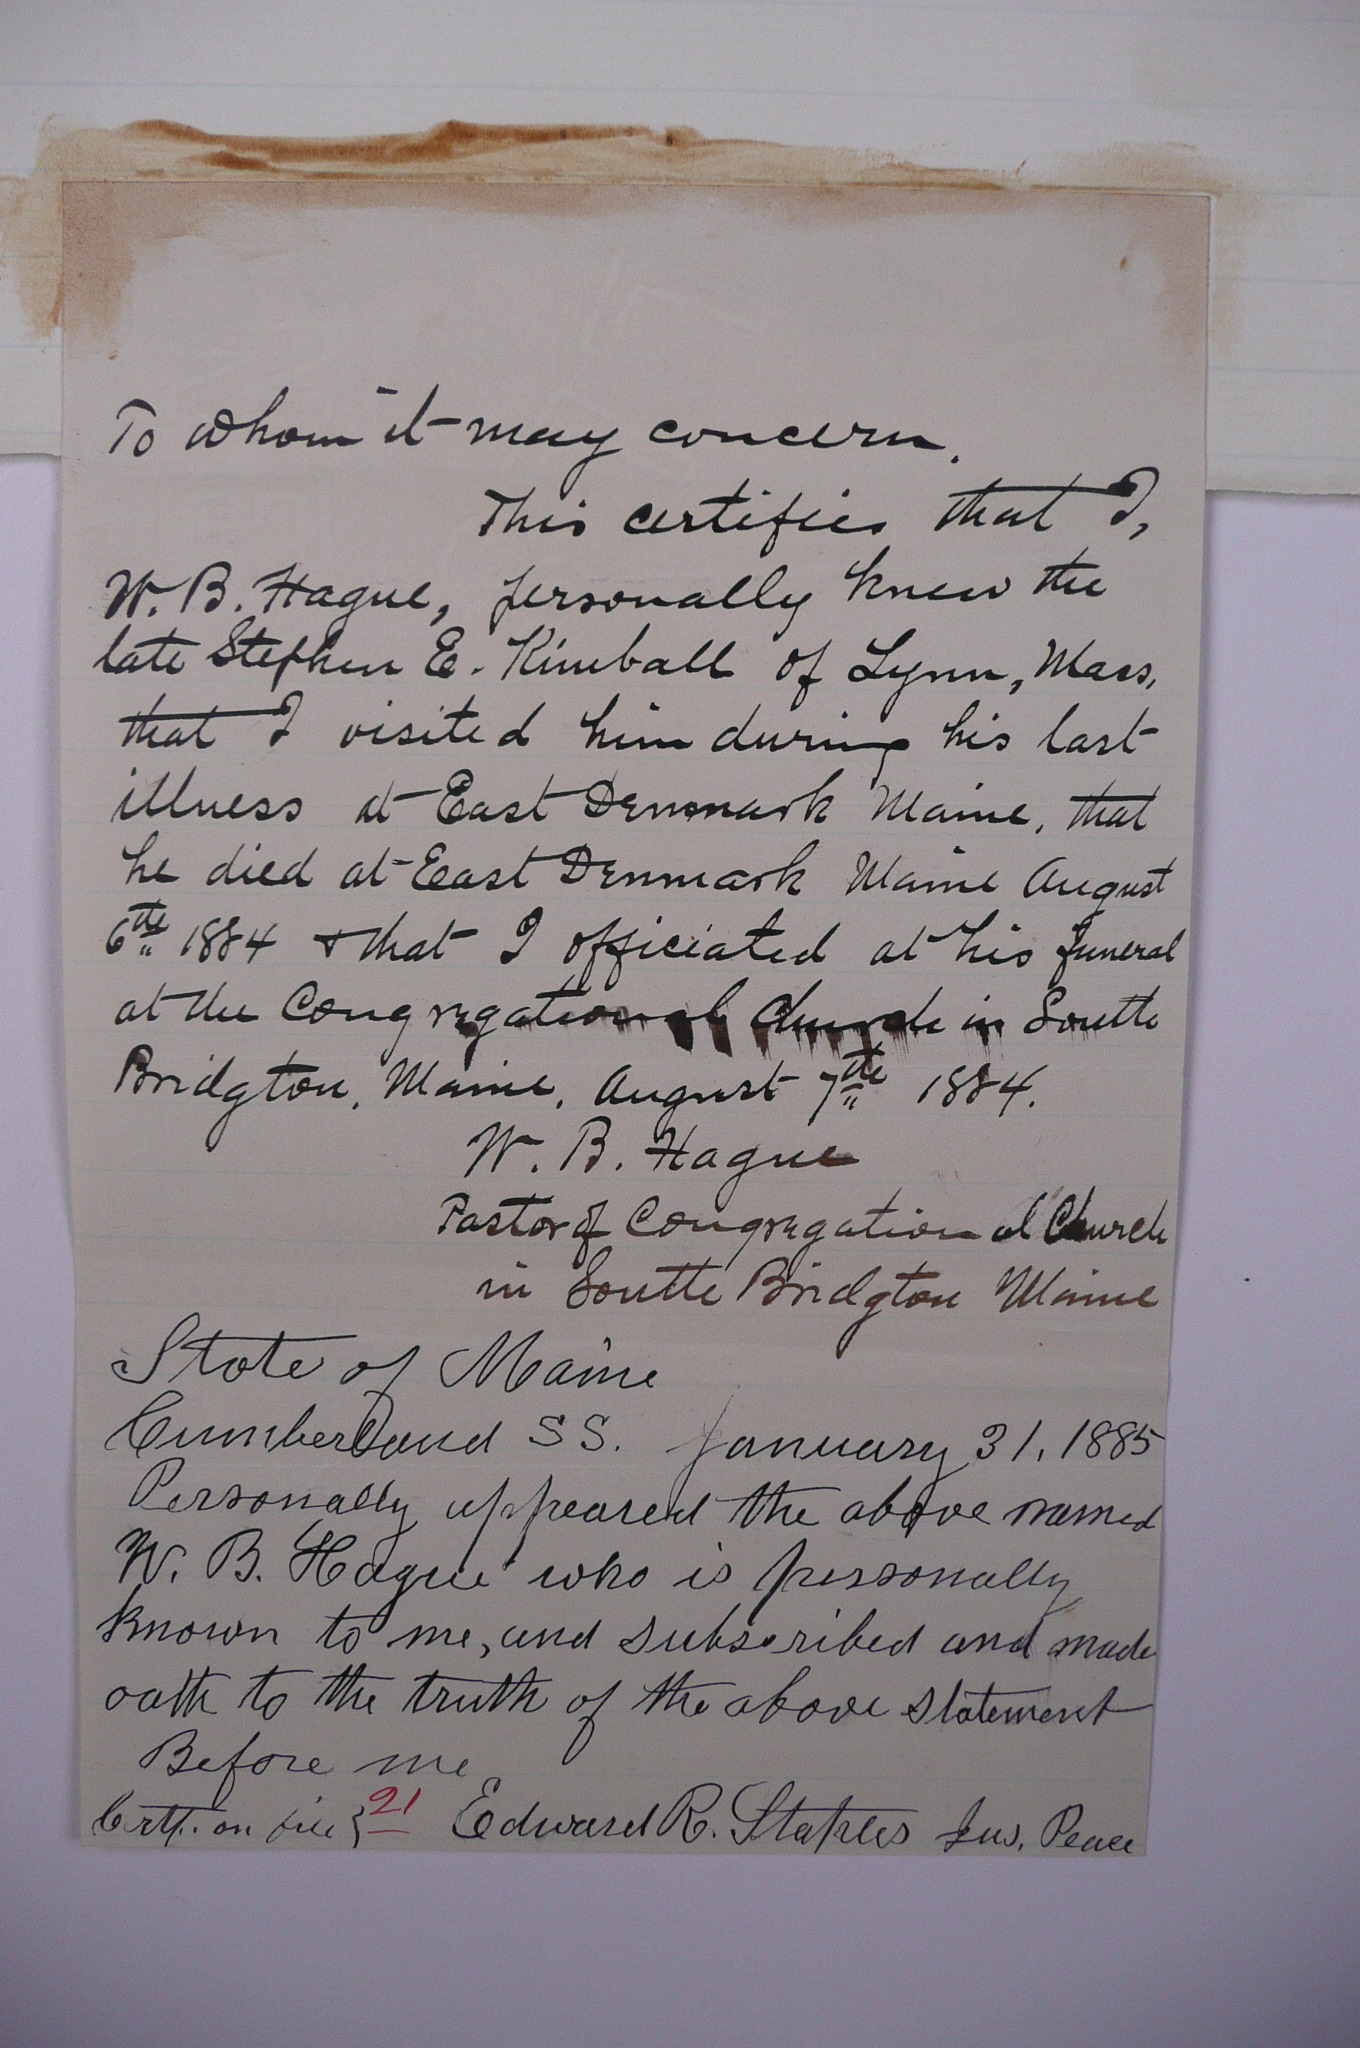 To whom it may concern.
This certifies that I,
W. B. Hague, personally knew the
late Stephen E. Kimball of Lynn, Mass,
that I visited him during his last
illness at East Denmark Maine, that
he died at East Denmark Maine August
6th 1884 & that I officiated at his funeral
at the Congregational Church in South
Bridgton, Maine, August 7th 1884.
W. B. Hague
Pastor of Congregational Church
in South Bridgton Maine
State of Maine
Cumberland SS. January 31, 1885
Personally appeared the above named
W. B. Hague who is personally
known to me, and subscribed and made
oath to the truth of the above statement
Before me
Certf. on file } 21 Edward R. Staples Jus. Peace